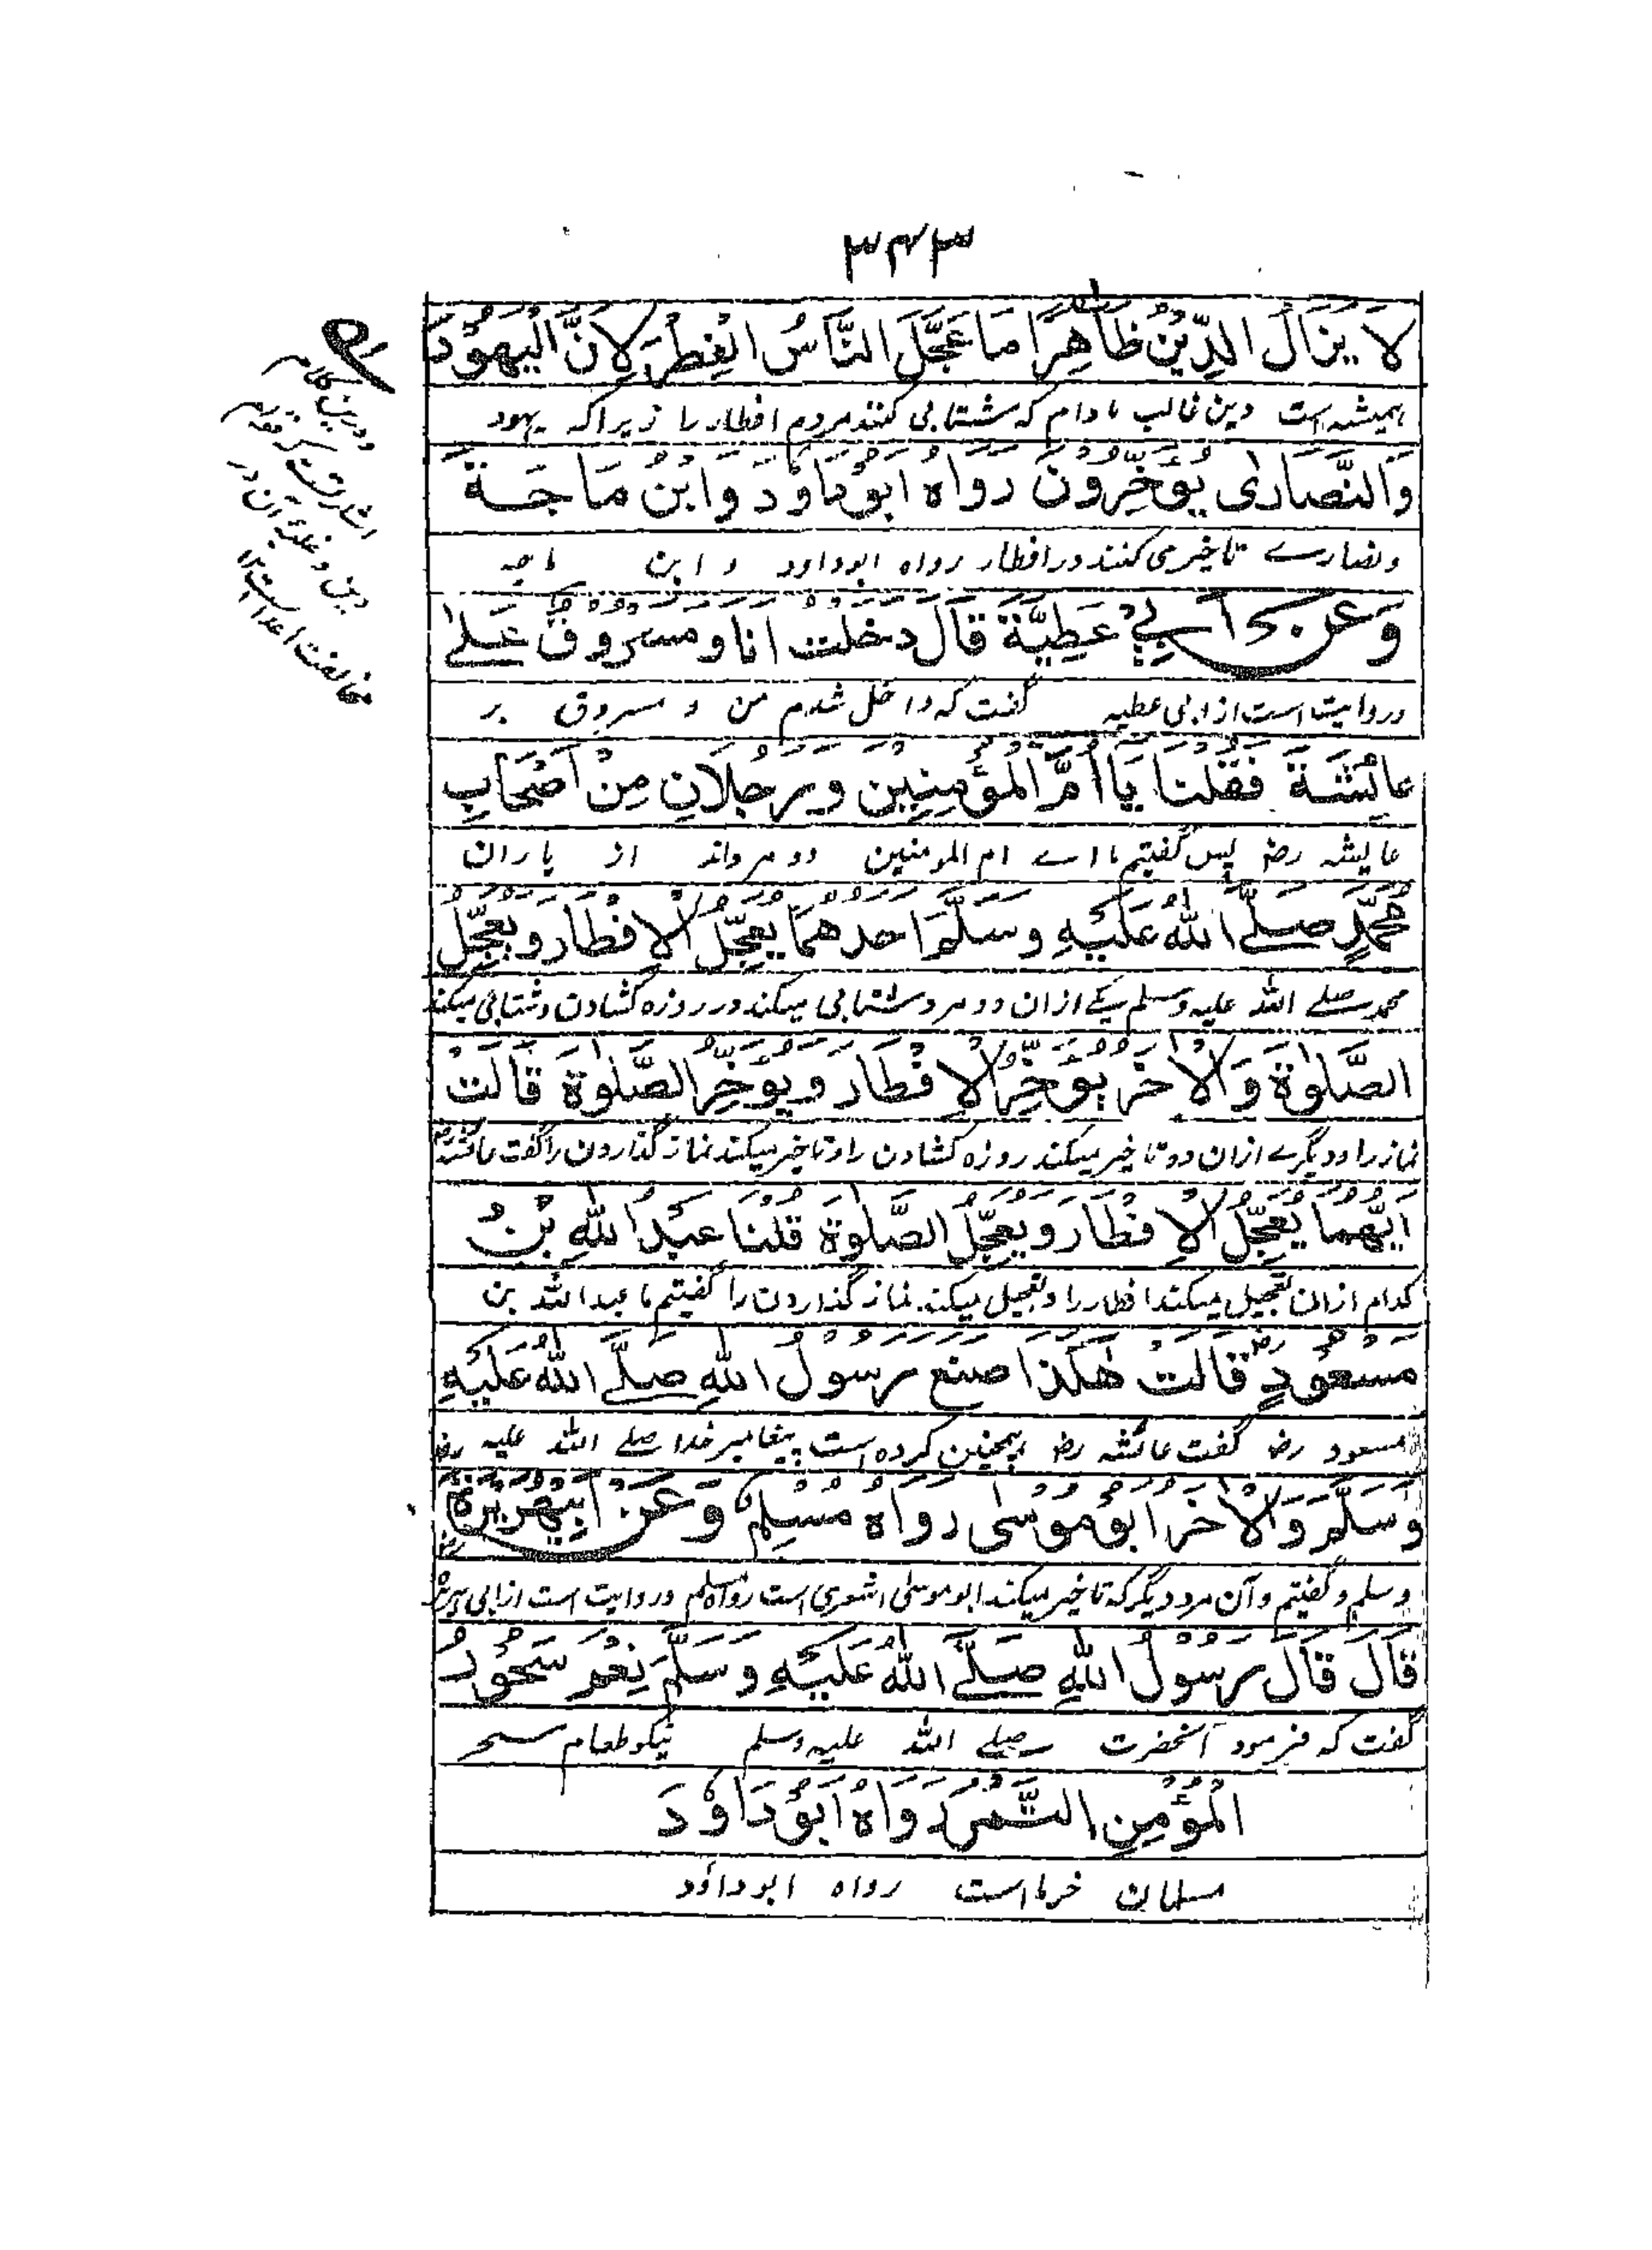 ۳۴۳
لَا يَزَالُ الدِّيْنُ ظَاهِرًا مَا عَجَّلَ النَّاسُ الْفِطْرَ لِاَنَّ الْيَهُوْدَ
ہمیشہ است دین غالب مادام کہ شتابی کنند مردم افطار را زیرا کہ یہود
وَالنَّصَارٰى يُؤَخِّرُوْنَ رَوَاهُ اَبُوْدَاوٗدَ وَابْنُ مَاجَةَ
ونصارے تاخیر می کنند در افطار رواہ ابوداود و ابن ماجہ
وَعَنْ اَبِيْ عَطِيَّةَ قَالَ دَخَلْتُ اَنَا وَمَسْرُوْقٌ عَلٰى
وروایت است از ابی عطیہ گفت کہ داخل شدم من و مسروق بر
عَائِشَةَ فَقُلْنَا يَا اُمَّ الْمُؤْمِنِيْنَ رَجُلَانِ مِنْ اَصْحَابِ
عایشہ رض پس گفتیم ما اے ام المومنین دو مرداند از یاران
مُحَمَّدٍ صَلَّے اللهُ عَلَيْهِ وَسَلَّمَ اَحَدُهُمَا يُعَجِّلُ الْاِفْطَارَ وَيُعَجِّلُ
محمد صلے اللہ علیہ وسلم یکے ازان دو مرد شتابی میکند در روزہ کشادن و شتابی میکند
الصَّلٰوةَ وَالْاٰخَرُ يُؤَخِّرُ الْاِفْطَارَ وَيُؤَخِّرُ الصَّلٰوةَ قَالَتْ
نماز را و دیگرے ازان دو تاخیر میکند روزہ کشادن را و تاخیر میکند نماز گذاردن را گفت عائشہ رض
اَيُّهُمَا يُعَجِّلُ الْاِفْطَارَ وَيُعَجِّلُ الصَّلٰوةَ قُلْنَا عَبْدُ اللهِ بْنُ
کدام ازان تعجیل میکند افطار را و تعجیل میکند نماز گذاردن را گفتیم ما عبد اللہ بن
مَسْعُوْدٍ رض قَالَتْ هٰكَذَا صَنَعَ رَسُوْلُ اللهِ صَلَّے اللهُ عَلَيْهِ
مسعود رض گفت عائشہ رض ہمچنین کردہ است پیغامبر خدا صلے اللہ علیہ
وَسَلَّمَ وَالْاٰخَرُ اَبُوْ مُوْسٰى رَوَاهُ مُسْلِمٌ وَعَنْ اَبِيْهُرَيْرَةَ رض
وسلم و گفتیم و آن مرد دیگر کہ تاخیر میکند ابو موسی اشعری است رواہ مسلم و روایت است از ابی ہریرہ
قَالَ قَالَ رَسُوْلُ اللهِ صَلَّے اللهُ عَلَيْهِ وَسَلَّمَ نِعْمَ سَحُوْرُ
گفت کہ فرمود آنحضرت صلے اللہ علیہ وسلم نیکو طعام سحر
الْمُؤْمِنِ التَّمْرُ رَوَاهُ اَبُوْدَاوٗدَ
مسلمان خرما است رواہ ابوداؤد
ودرین کلام
اشارت
دین و غلبۂ آن در
مخالفت اعدا است ۱۲